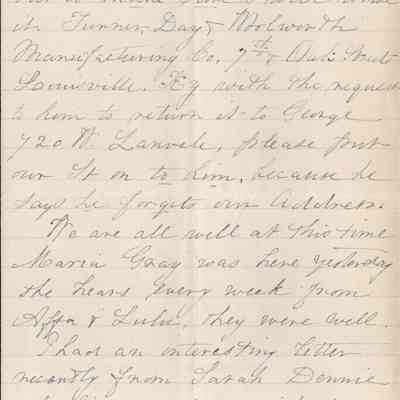 it Turner, Day & Wolworth
Manufacturing Co. 7th &
Louisville. Ky with the request
to him to return it to George
720 W. Lanvale, please put
our St on to him, because he
says he forgets our Address.
We are all well at this time
Maria Gray was here yesterday
she hears every week from
Affa & Lulie. They were well.
I had an interesting letter
recently from Sarah Dennie